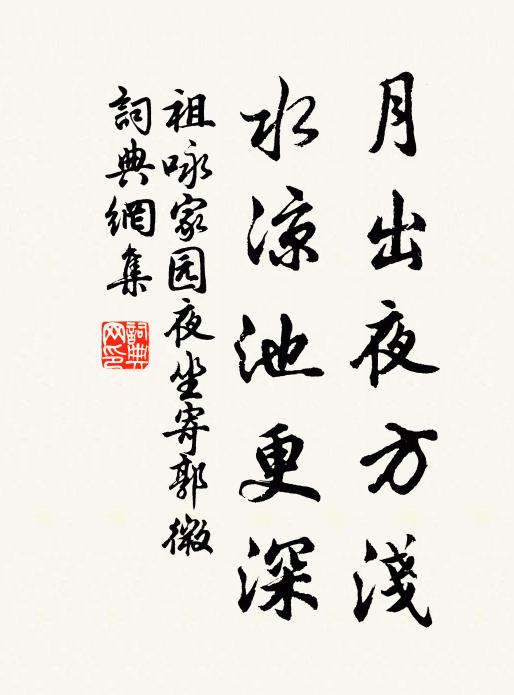 月出夜方淺
水涼池更深
祖咏家园夜坐寄郭微
詞典網集
詞典網印